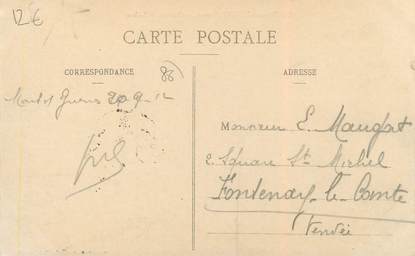 12€
CARTE POSTALE
CORRESPONDANCE
86
ADRESSE
20-9-12
Monsieur E. Maugat
2. Square St Michel
Fontenay-le-Comte
Vendée